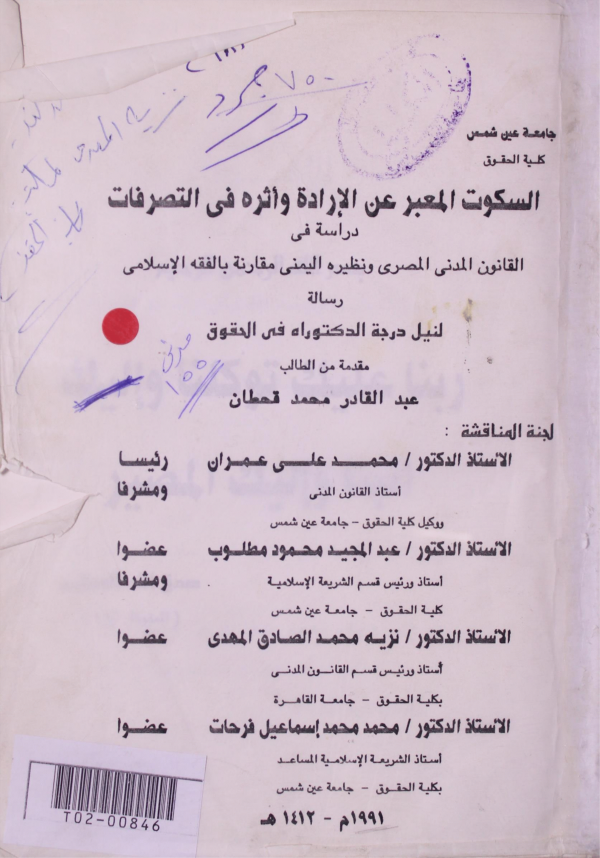 جامعة عين شمس
كلية الحقوق
السكوت المعبر عن الإرادة وأثره فى التصرفات
دراسة فى
القانون المدنى المصرى ونظيره اليمنى مقارنة بالفقه الإسلامى
رسالة
لنيل درجة الدكتوراه فى الحقوق
مقدمة من الطالب
عبد القادر محمد قحطان
مدنى
١٥٥
لجنة المناقشة :
الأستاذ الدكتور / محمد على عمران رئيسا
أستاذ القانون المدنى ومشرفا
ووكيل كلية الحقوق - جامعة عين شمس
الأستاذ الدكتور / عبد المجيد محمود مطلوب عضوا
أستاذ ورئيس قسم الشريعة الإسلامية ومشرفا
كلية الحقوق - جامعة عين شمس
الأستاذ الدكتور / نزيه محمد الصادق المهدى عضوا
أستاذ ورئيس قسم القانون المدنى
بكلية الحقوق - جامعة القاهرة
الأستاذ الدكتور / محمد محمد إسماعيل فرحات عضوا
أستاذ الشريعة الإسلامية المساعد
بكلية الحقوق - جامعة عين شمس
١٩٩١م - ١٤١٢ هـ
T02-00846